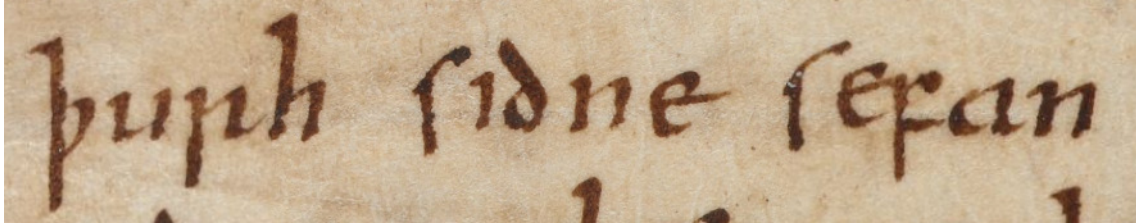 þurh sidne sefan